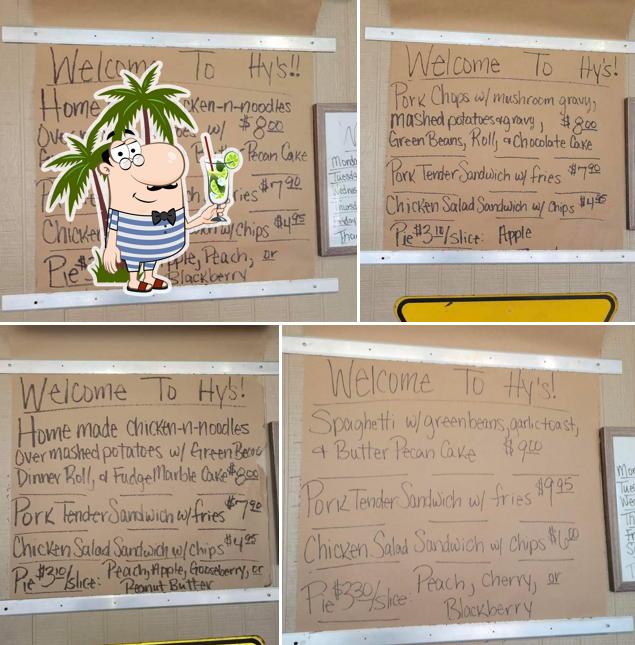 Welcome To Hy's!!
Home cken-n-noodles
Ove oes w/ $8.00
Pecan Cake
ries $7.90
Chicken w/ chips $4.95
Pie $ ple, Peach, or
Blackberry
Monda
Tuesda
Wednes
Thursd
Welcome To Hy's!
Pork Chops w/ mushroom gravy,
mashed potatoes & gravy, $8.00
Green Beans, Roll, & Chocolate Cake
Pork Tender Sandwich w/ fries $7.90
Chicken Salad Sandwich w/ chips $4.95
Pie $3.10/slice: Apple
Welcome To Hy's!
Home made chicken-n-noodles
Over mashed potatoes w/ Green Beans
Dinner Roll, & Fudge Marble Cake $8.00
Pork Tender Sandwich w/ fries $7.90
Chicken Salad Sandwich w/ chips $4.95
Pie $3.10/slice: Peach, Apple, Gooseberry, or
Peanut Butter
Welcome To Hy's!
Spaghetti w/ greenbeans, garlic toast,
& Butter Pecan Cake $9.00
Pork Tender Sandwich w/ fries $9.95
Chicken Salad Sandwich w/ chips $6.00
Pie $3.30/slice: Peach, Cherry, or
Blackberry